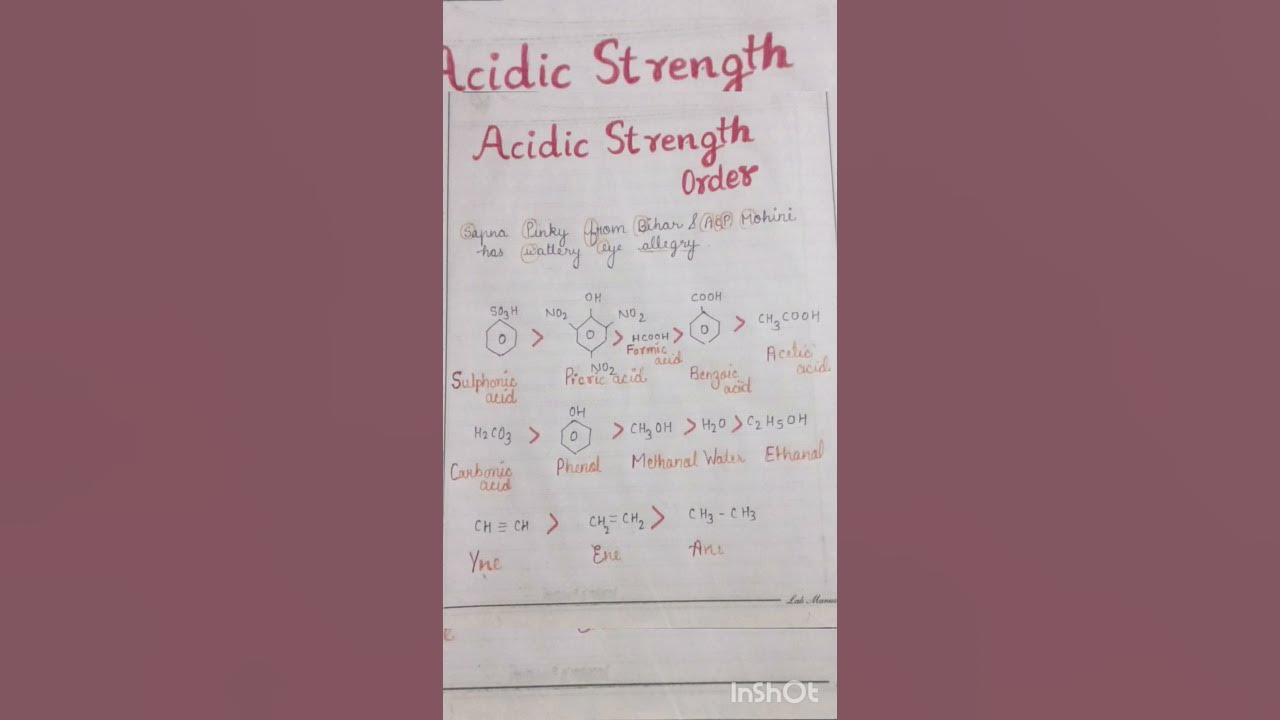 Acidic Strength
Acidic Strength
Order
Sapna Pinky from Bihar & ACP Mohini
has wattery eye allegry.
SO3H > OH NO2 NO2 NO2 > HCOOH > COOH > CH3COOH
Sulphonic acid Picric acid Formic acid Benzoic acid Acetic acid
H2CO3 > OH > CH3OH > H2O > C2H5OH
Carbonic acid Phenol Methanal Water Ethanal
CH ≡ CH > CH2=CH2 > CH3 - CH3
Yne Ene Ane
InShOt